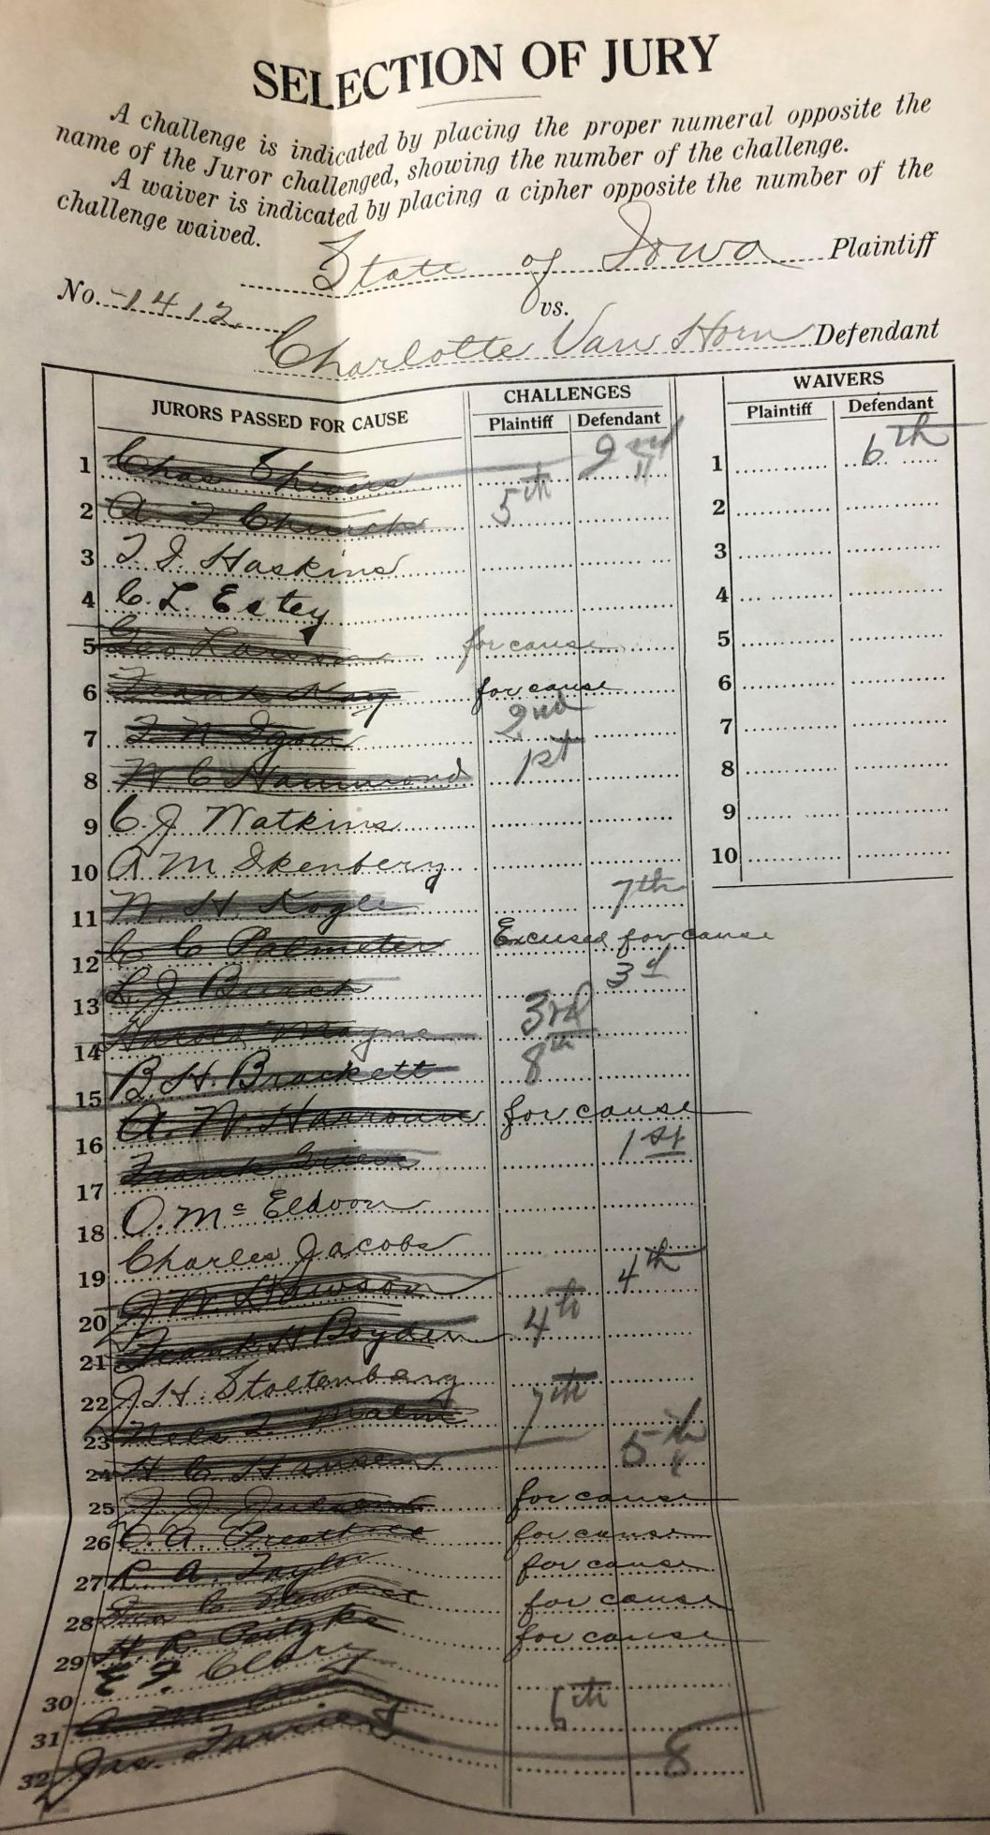 SELECTION OF JURY
A challenge is indicated by placing the proper numeral opposite the
name of the Juror challenged, showing the number of the challenge.
A waiver is indicated by placing a cipher opposite the number of the
challenge waived.
State of Iowa Plaintiff
vs.
No. 1412
Charlotte Van Horn Defendant
JURORS PASSED FOR CAUSE CHALLENGES WAIVERS
Plaintiff Defendant Plaintiff Defendant
1 Chas 2nd 1 6th
2 Church 5th 2
3 Haskins 3
4 C. L. Estey 4
5 Geo for cause 5
6 Frank for cause 6
7 2nd 7
8 W C Hammond 1st 8
9 C. J. Watkins 9
10 A M Ikenberry 10
11 W. H. Kogle 7th
12 C C Palmeter Excused for cause
13 L. J. 3d
14 Harold Mayne 3rd
15 B. H. Brackett 8th
16 A. W. for cause
17 Frank 1st
18 O. Mc Eldoon
19 Charles Jacobs
20 J. W. Lawson 4th
21 Frank H Boyden 4th
22 J. H. Stoltenberg
23 Nels L. Malm 7th
24 H C Hansen 5th
25 for cause
26 for cause
27 R. A. Taylor for cause
28 for cause
29 H. R. for cause
30
31 6th
32 Jas. 8